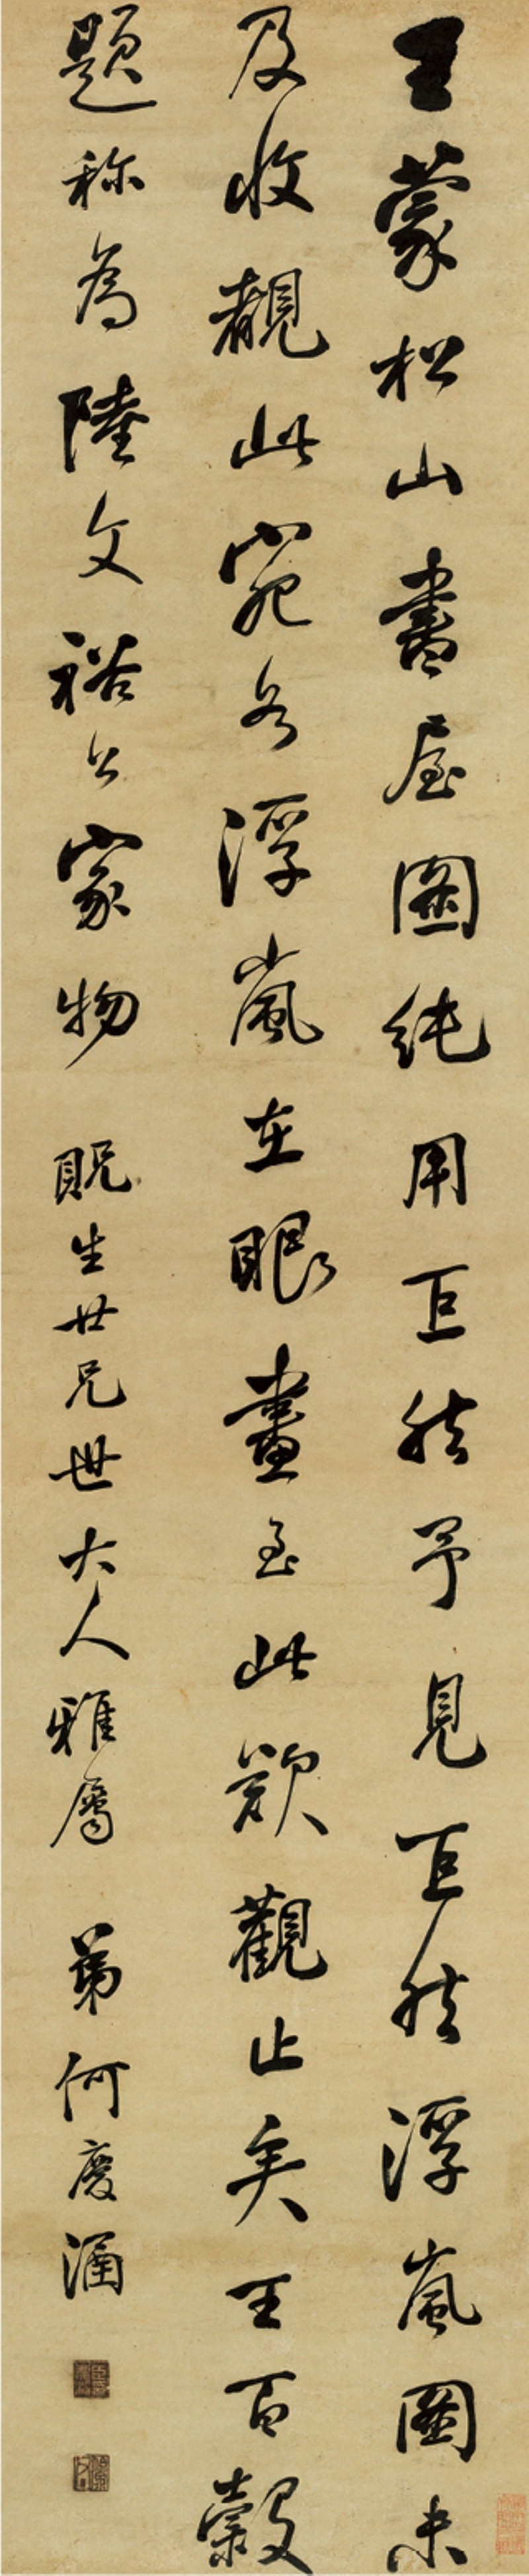 王蒙松山書屋圖純用巨然予見巨然浮嵐圖未
及收觀此宛若浮嵐在眼畫至此欲觀止矣王百穀
題称為陸文裕公家物 貺生廿兄世大人雅屬 弟何慶涵